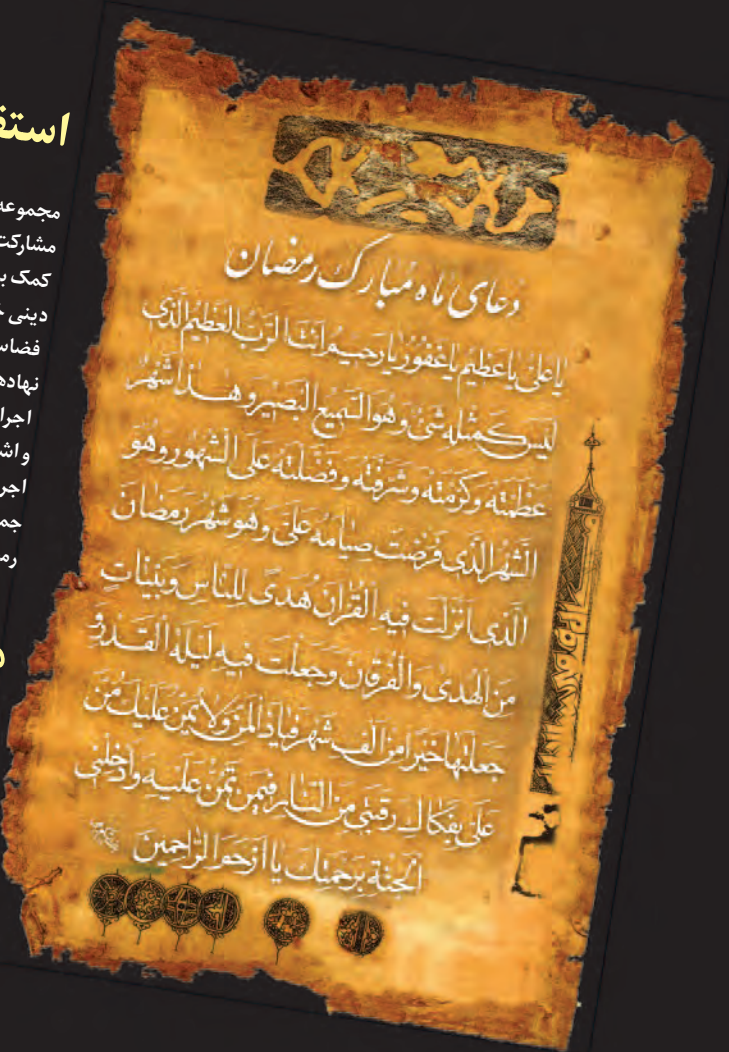 دعای ماه مبارک رمضان
یا علی یا عظیم یا غفور یا رحیم انت الرب العظیم الذی
لیس کمثله شیء و هو السمیع البصیر و هذا شهر
عظمته و کرمته و شرفته و فضلته علی الشهور و هو
الشهر الذی فرضت صیامه علی و هو شهر رمضان
الذی انزلت فیه القران هدی للناس و بینات
من الهدی و الفرقان و جعلت فیه لیله القدر و
جعلتها خیرا من الف شهر فیا ذالمن و لا یمن علیک من
علی بفکاک رقبتی من النار فیمن تمن علیه و ادخلنی
الجنة برحمتک یا ارحم الراحمین
مجموعه
مشارکت
دینی